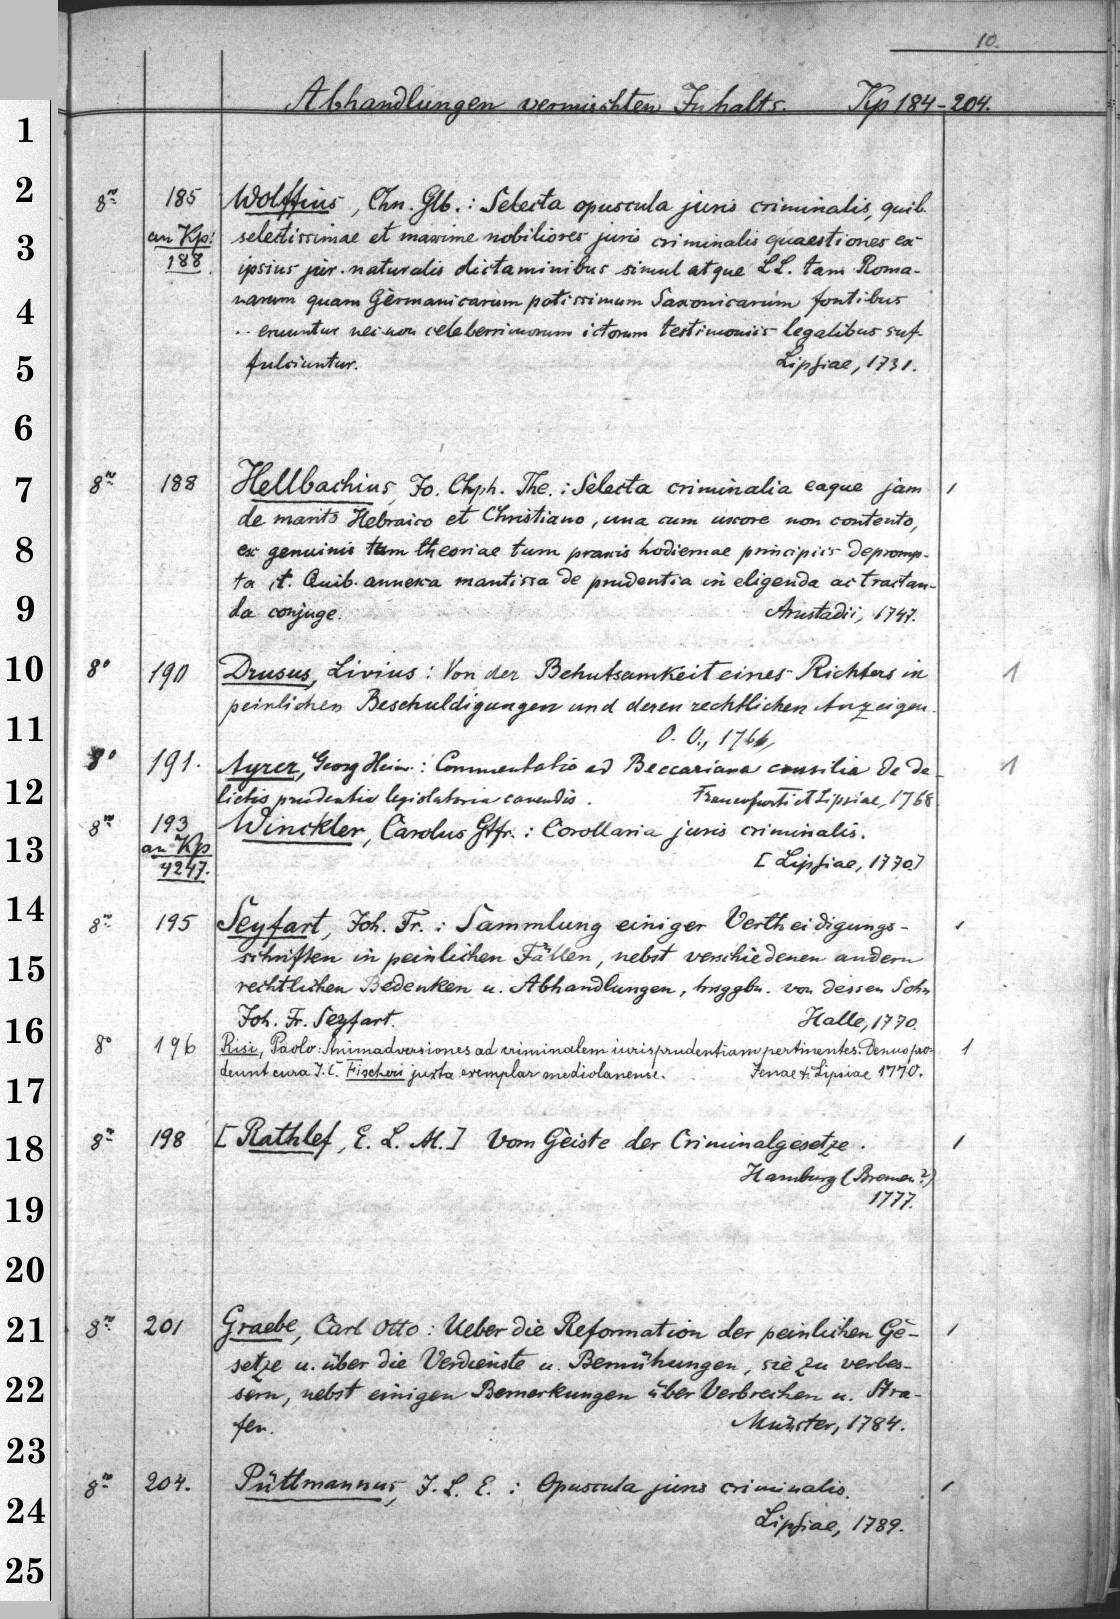 10.
Abhandlungen vermischten Inhalts. Kp 184-204.
1
2
3
4
5
6
7
8
9
10
11
12
13
14
15
16
17
18
19
20
21
22
23
24
25
8º 185 Wolffius, Chn. Glb.: Selecta opuscula juris criminalis, quib.
an Kp: selectissimae et maxime nobiliores juris criminalis quaestiones ex
188. ipsius jur. naturalis dictaminibus simul atque LL. tam Roma-
narum quam Germanicarum potissimum Saxonicarum fontibus
.. eruuntur nec non celeberrimorum ictorum testimoniis legalibus suf-
fulciuntur. Lipsiae, 1731.
8º 188 Hellbachius, Jo. Chph. The.: Selecta criminalia eaque jam 1
de marito Hebraico et Christiano, una cum uxore non contento,
ex genuinis tum theoriae tum praxis hodiernae principiis depromp-
ta et. Quib. annexa mantissa de prudentia in eligenda ac tractan-
da conjuge. Arnstadii, 1747.
8º 190 Drusus, Livius: Von der Behutsamkeit eines Richters in 1
peinlichen Beschuldigungen und deren rechtlichen Anzeigen.
O. O., 1766,
8º 191. Ayrer, Georg Heinr.: Commentatio ad Beccariana consilia de de- 1
lictis prudentia legislatoria cavendis. Francofurti et Lipsiae, 1768
8º 193 Winckler, Carolus Gtfr.: Corollaria juris criminalis.
an Kp [Lipsiae, 1770]
4247.
8º 195 Seyfart, Joh. Fr.: Sammlung einiger Vertheidigungs- 1
schriften in peinlichen Fällen, nebst verschiedenen andern
rechtlichen Bedenken u. Abhandlungen, hrsggbn. von dessen Sohn
Joh. Fr. Seyfart. Halle, 1770.
8º 196 Risi, Paolo: Animadversiones ad criminalem iurisprudentiam pertinentes. Denuo pro- 1
deunt cura J. C. Fischeri juxta exemplar mediolanense. Jenae & Lipsiae 1770.
8º 198 [Rathlef, E. L. M.] Vom Geiste der Criminalgesetze. 1
Hamburg (Bremen?)
1777.
8º 201 Graebe, Carl Otto: Ueber die Reformation der peinlichen Ge- 1
setze u. über die Verdienste u. Bemühungen, sie zu verbes-
sern, nebst einigen Bemerkungen über Verbrechen u. Stra-
fen. Münster, 1784.
8º 204. Püttmannus, J. L. E.: Opuscula juris criminalis. 1
Lipsiae, 1789.